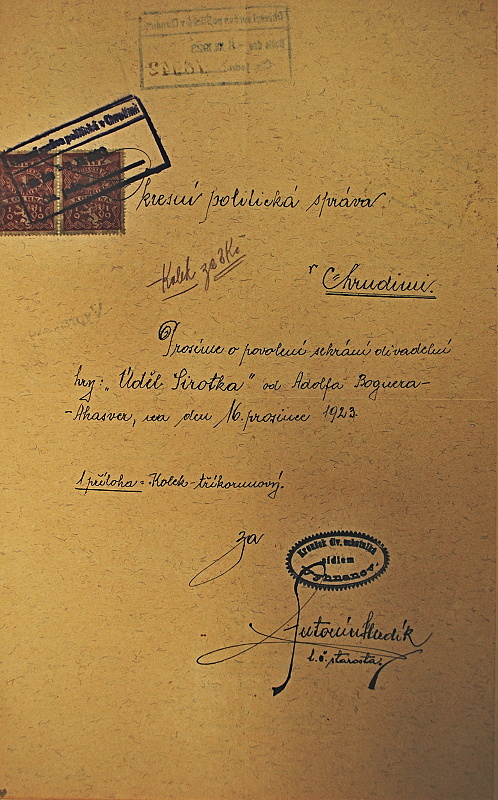 Okresní politická správa
v Chrudimi.
Kolek za 3 Kč
Prosíme o povolení sehrání divadelní
hry: "Úděl Sirotka" od Adolfa Bognera-
-Ahasver, na den 16. prosince 1923.
1 příloha = Kolek-tříkorunový.
za
Kroužek div. ochotníků
sídlem
Antonín Hladík
t. č. starosta.
politická v Chrudimi